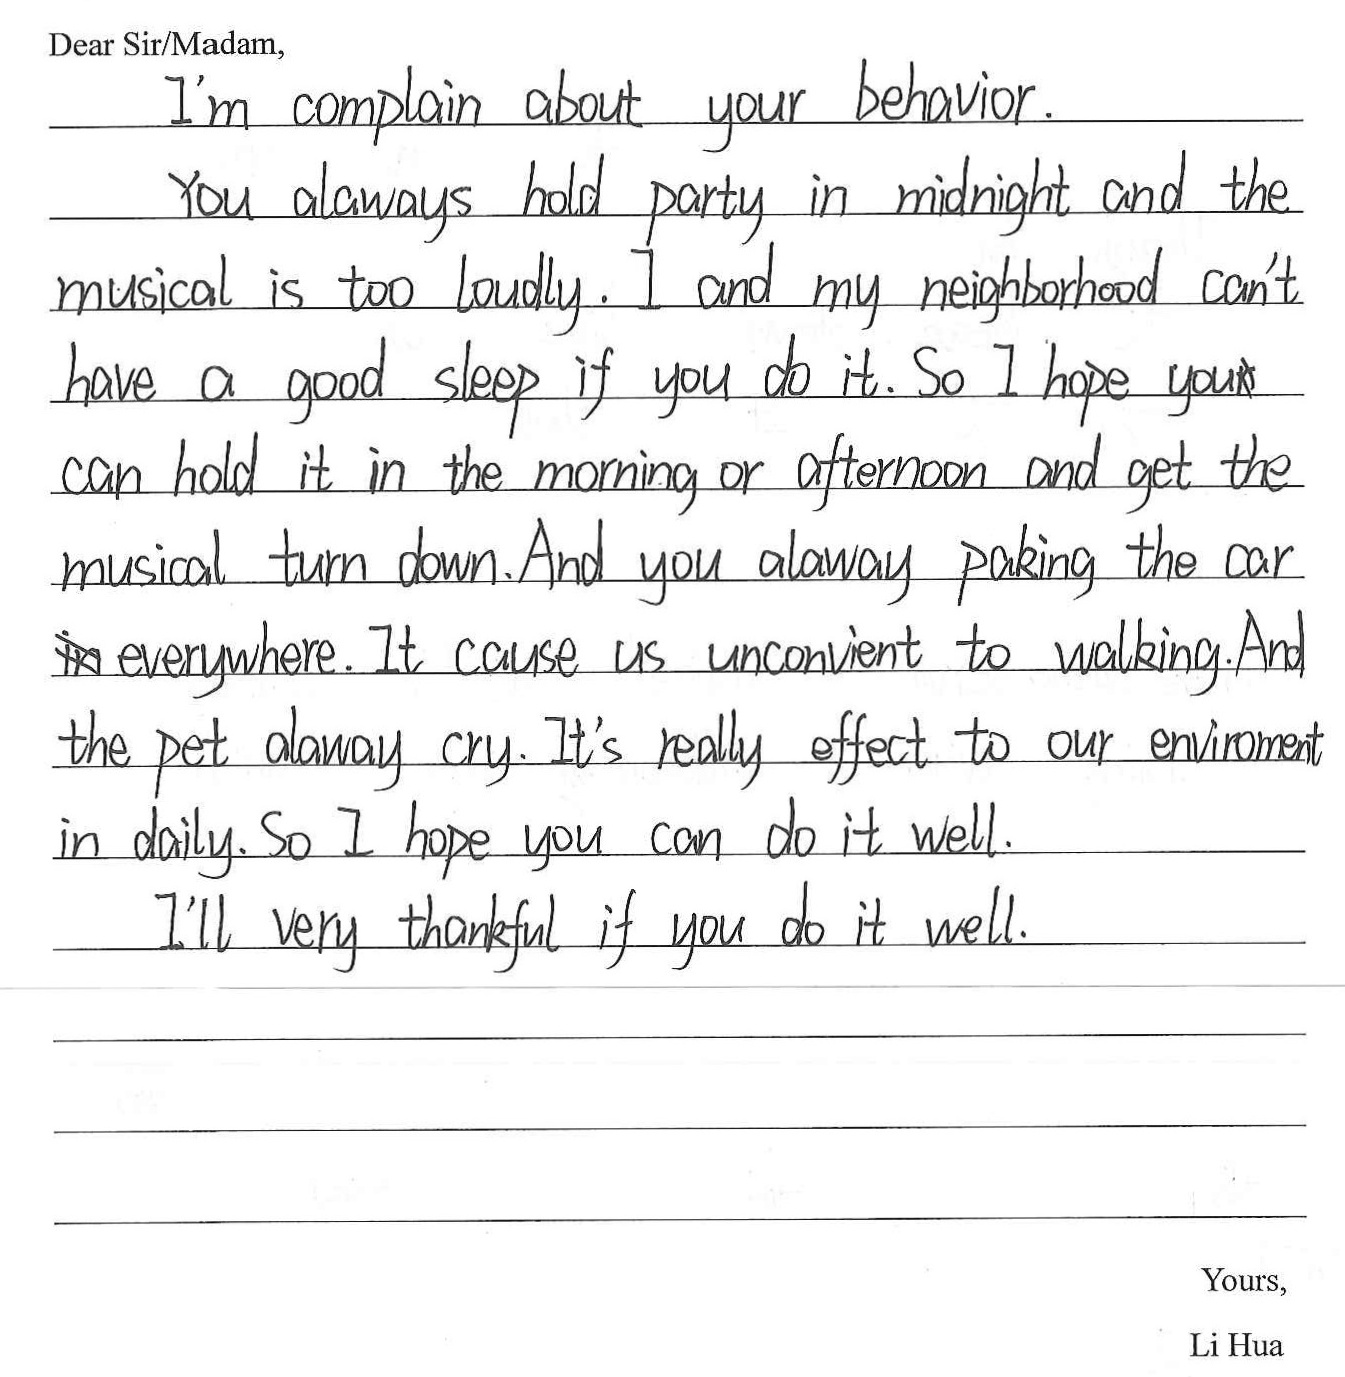 Dear Sir/Madam,
I'm complain about your behavior.
You alaways hold party in midnight and the
musical is too loudly. I and my neighborhood can't
have a good sleep if you do it. So I hope you
can hold it in the morning or afternoon and get the
musical turn down. And you alaway paking the car
everywhere. It cause us unconvient to walking. And
the pet alaway cry. It's really effect to our enviroment
in daily. So I hope you can do it well.
I'll very thankful if you do it well.
Yours,
Li Hua